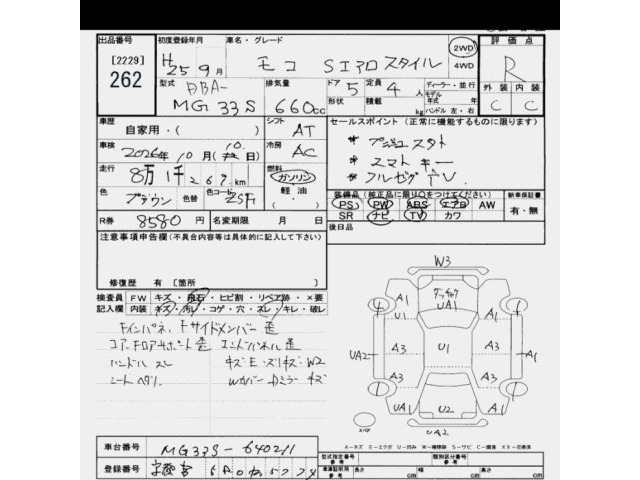 出品番号 初度登録年月 車名・グレード 評価点
[2229]
262
H25年9月 モコ Sエアロスタイル 2WD 4WD R
型式 排気量 ドア 定員 ディーラー・並行 外装 内装
DBA-
MG33S 660cc 5 4人 C C
形状 積載 kg モデル 年式 年 ハンドル 左・右
車歴 自家用・( ) シフト AT セールスポイント(正常に機能するものに限ります)
車検 2026年10月 冷房 AC *プッシュスタート
走行 8万1千269km 燃料 ガソリン 軽油 *スマトキー
*フルセグTV
色 ブラウン 色替 色コード 装備品(純正品に限り○をつけてください) 新車保証書
PS PW ABS エアB AW 有・無
SR ナビ TV カワ
R券 8580円 名変期限 月 日 後日品
注意事項申告欄(不具合内容等は具体的に記入して下さい)
修復歴 有 [箇所 ]
検査員 FW キズ・飛石・ヒビ割・リペア跡・×要
記入欄 内装 キズ・汚レ・コゲ・穴・スレ・キレ・破レ
Fインパネ、Fサイドメンバー歪
エンドパネル歪
ハンドルスレ
シートヘタリ
W3
A1 U1 UA1 A1
UA2 A3 U1 A3 A1
A3 A3
UA1 U2 A1
UA2
スペア
A-キズ E-エクボ U-凹み W-補修跡 S-サビ C-腐食 XX-交換済
車台番号 MG33S-640211
型式指定番号 参考 類別区分番号 参考
登録番号 車庫証明用 参考 長さ cm 幅 cm 高さ cm